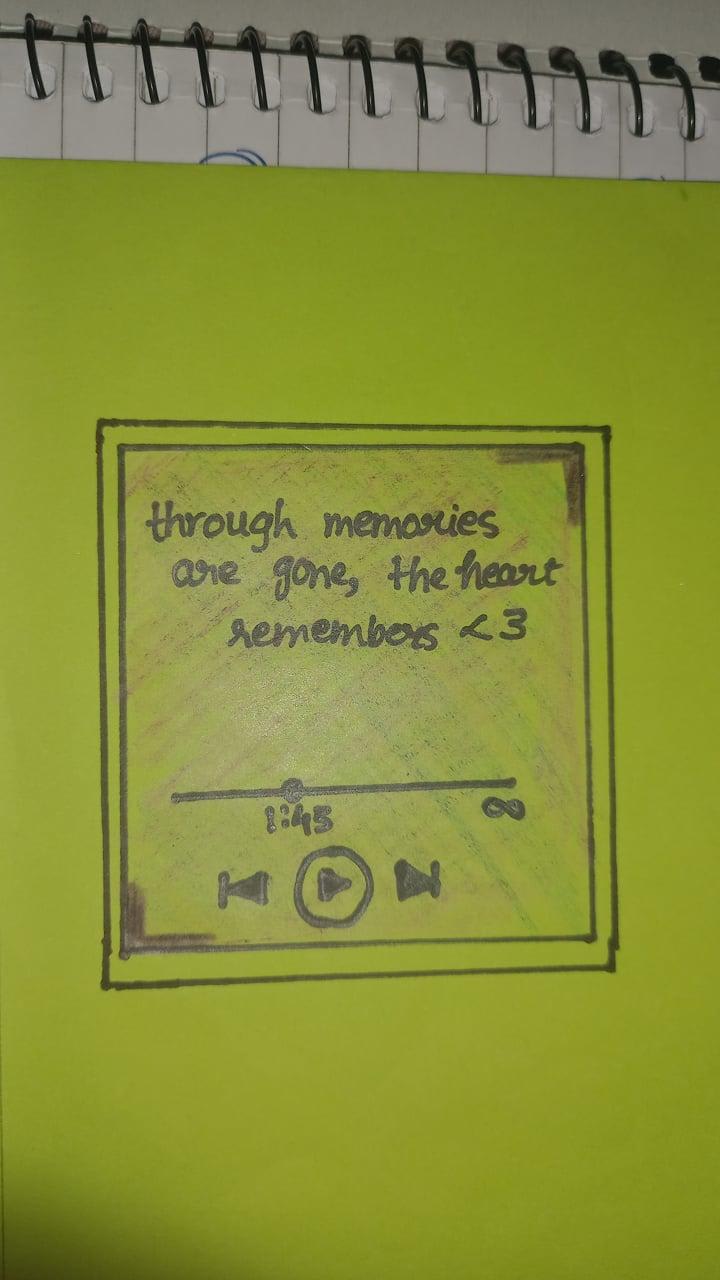 through memories
are gone, the heart
remembers <3
1:45 ∞